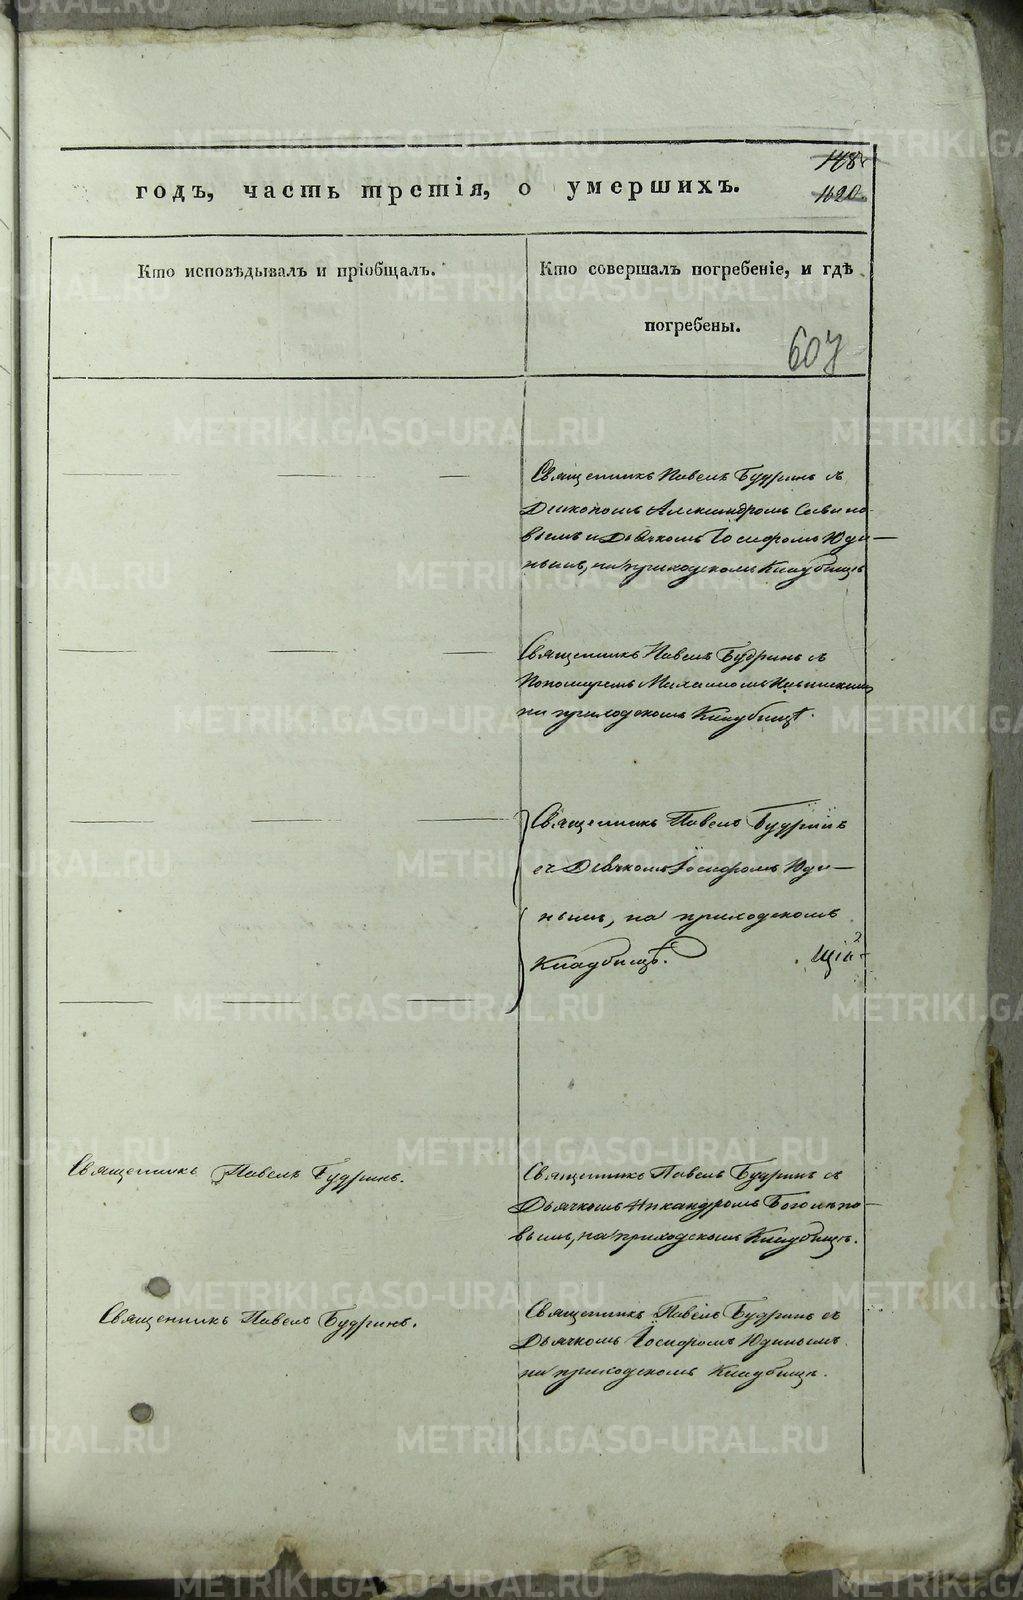 148
годъ, часть третія, о умершихъ.
1620.
Кто исповѣдывалъ и пріобщалъ.
Кто совершалъ погребеніе, и гдѣ
погребены.
607
Священникъ Павелъ Будринъ съ
Діакономъ Александромъ Савино-
вымъ и Дьячкомъ Іосифомъ Юди-
нымъ, на приходскомъ Кладбищѣ
Священникъ Павелъ Будринъ съ
Пономаремъ Михаиломъ
на приходскомъ Кладбищѣ.
Священникъ Павелъ Будринъ
съ Дьячкомъ Іосифомъ Юди-
нымъ, на приходскомъ
Кладбищѣ.
Священникъ Павелъ Будринъ.
Священникъ Павелъ Будринъ съ
Дьячкомъ Никандромъ Боголѣпо-
вымъ, на приходскомъ Кладбищѣ.
Священникъ Павелъ Будринъ.
Священникъ Павелъ Будринъ съ
Дьячкомъ Іосифомъ Юдинымъ
на приходскомъ Кладбищѣ.
METRIKI.GASO-URAL.RU